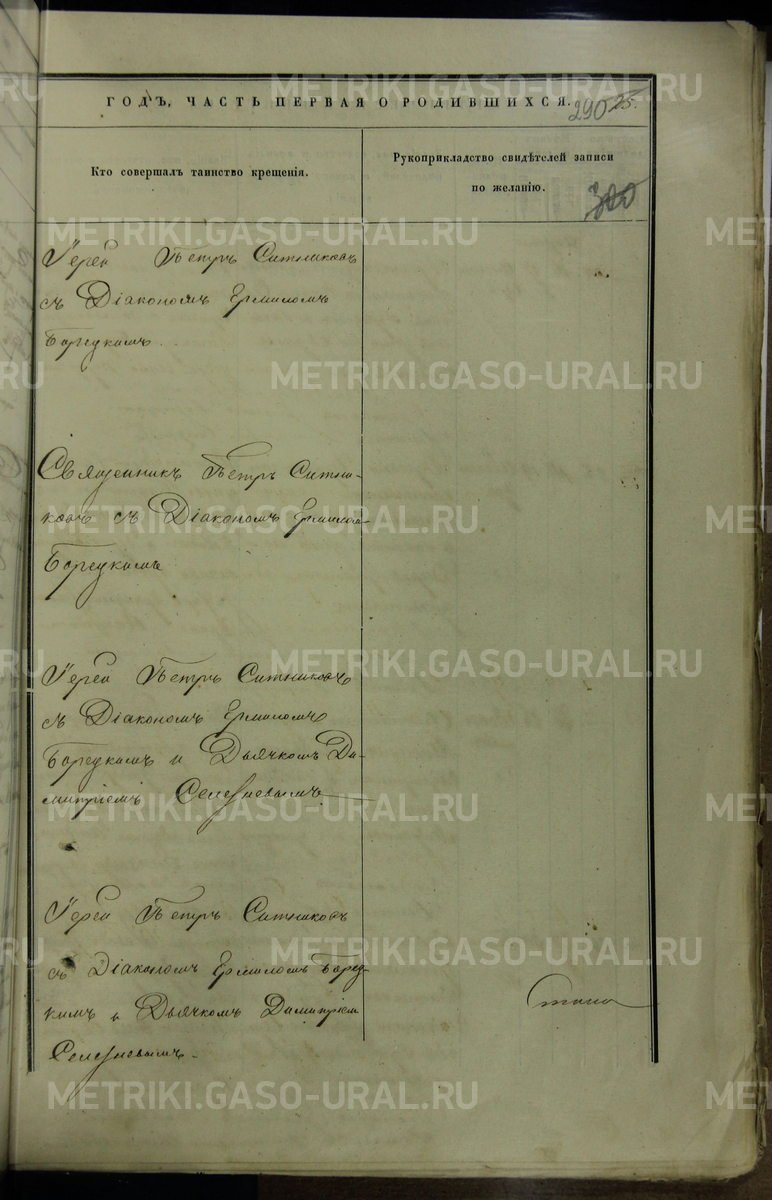 ГОДЪ, ЧАСТЬ ПЕРВАЯ О РОДИВШИХСЯ.
290 25.
Кто совершалъ таинство крещенія.
Рукоприкладство свидѣтелей записи
по желанію.
300
Іерей Петръ Ситниковъ
съ Діакономъ Ермиломъ
Борецкимъ.
Священникъ Петръ Ситни-
ковъ съ Діакономъ Ермиломъ
Борецкимъ
Іерей Петръ Ситниковъ
съ Діакономъ Ермиломъ
Борецкимъ и Дьячкомъ Ди-
митріемъ Селезневымъ.
Іерей Петръ Ситниковъ
съ Діакономъ Ермиломъ Борец-
кимъ и Дьячкомъ Димитріем
Селезневымъ.
METRIKI.GASO-URAL.RU